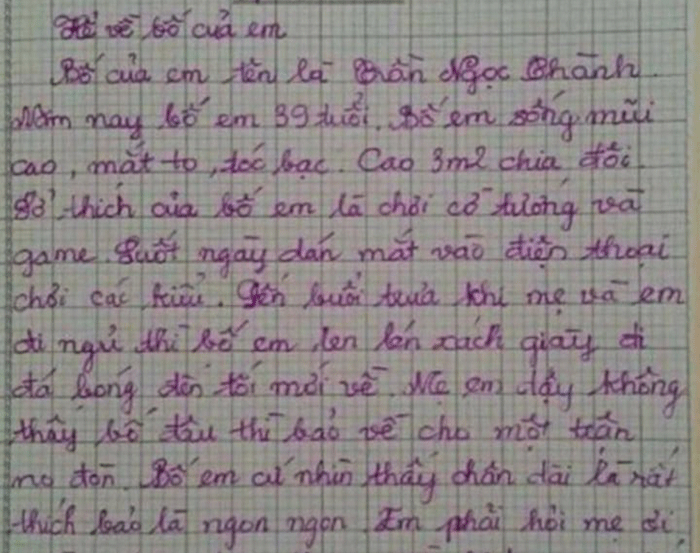 Kể về bố của em
Bố của em tên là Trần Ngọc Thành.
Năm nay bố em 39 tuổi. Bố em sống mũi
cao, mắt to, tóc bạc. Cao 3m2 chia đôi.
Sở thích của bố em là chơi cờ tướng và
game. Suốt ngày dán mắt vào điện thoại
chơi các kiểu. Đến buổi trưa khi mẹ và em
đi ngủ thì bố em len lén xách giày đi
đá bóng đến tối mới về. Mẹ em dậy không
thấy bố đâu thì bảo về cho một trận
no đòn. Bố em cứ nhìn thấy chân dài là rất
thích bảo là ngon ngon. Em phải hỏi mẹ ơi